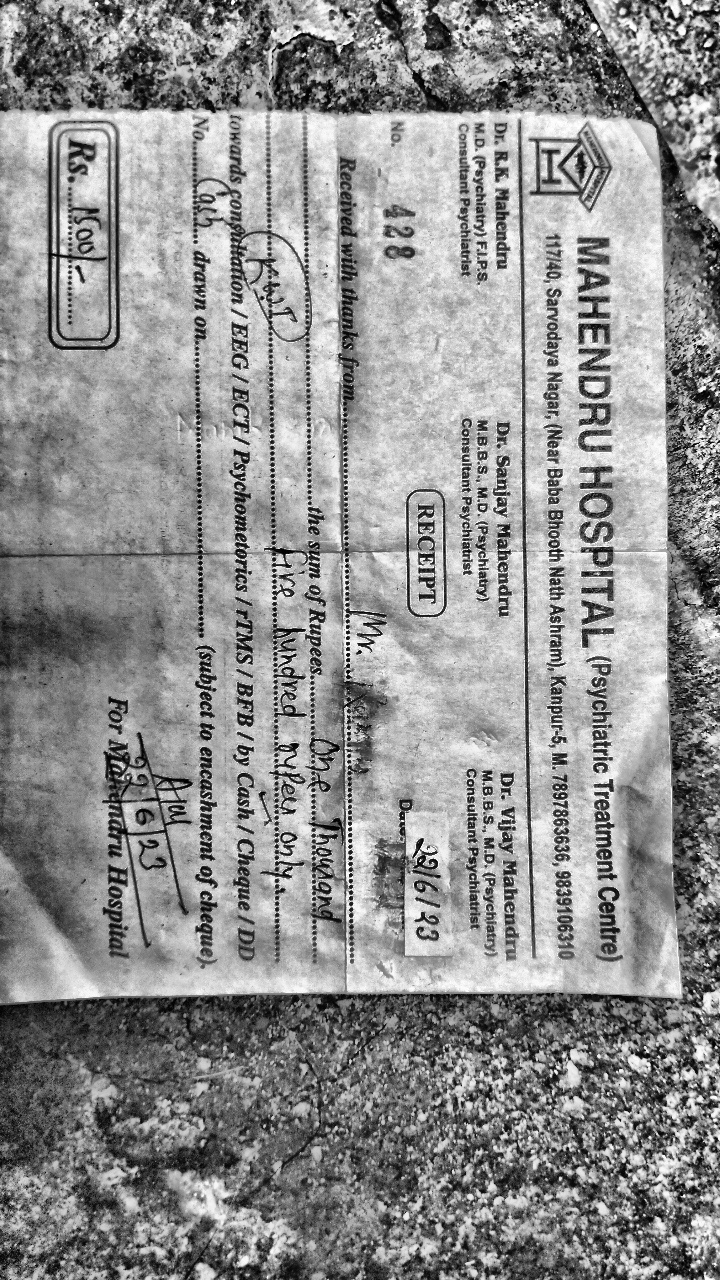 MAHENDRU HOSPITAL (Psychiatric Treatment Centre)
117/40, Sarvodaya Nagar, (Near Baba Bhooth Nath Ashram), Kanpur-5, M. 7897863636, 9839106310
Dr. R.K. Mahendru Dr. Sanjay Mahendru Dr. Vijay Mahendru
M.D. (Psychiatry) F.I.P.S. M.B.B.S., M.D. (Psychiatry) M.B.B.S., M.D. (Psychiatry)
Consultant Psychiatrist Consultant Psychiatrist Consultant Psychiatrist
No. 428 RECEIPT Date 22/6/23
Received with thanks from Mr.
the sum of Rupees One Thousand
Five hundred rupees only.
towards consultation / EEG / ECT / Psychometorics / rTMS / BFB / by Cash / Cheque / DD
No. Cash drawn on (subject to encashment of cheque).
22/6/23
Rs. 1500/- For Mahendru Hospital